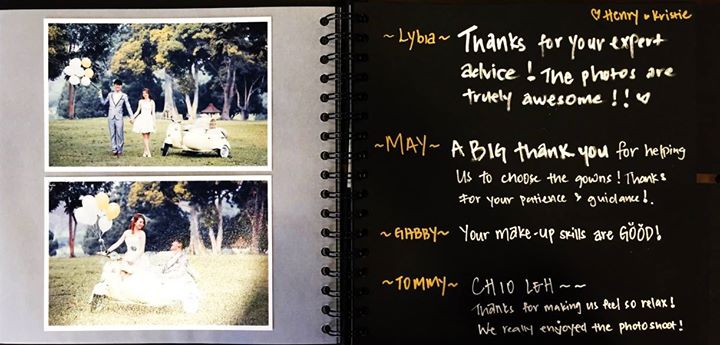 ♡Henry & Kristie
~Lybia~ Thanks for your expert
advice! The photos are
truely awesome!!♡
~MAY~ A BIG thank you for helping
us to choose the gowns! Thanks
for your patience & guidance!.
~GABBY~ Your make-up skills are GÖÖD!
~TOMMY~ CHIO L&H~~
Thanks for making us feel so relax!
We really enjoyed the photoshoot!